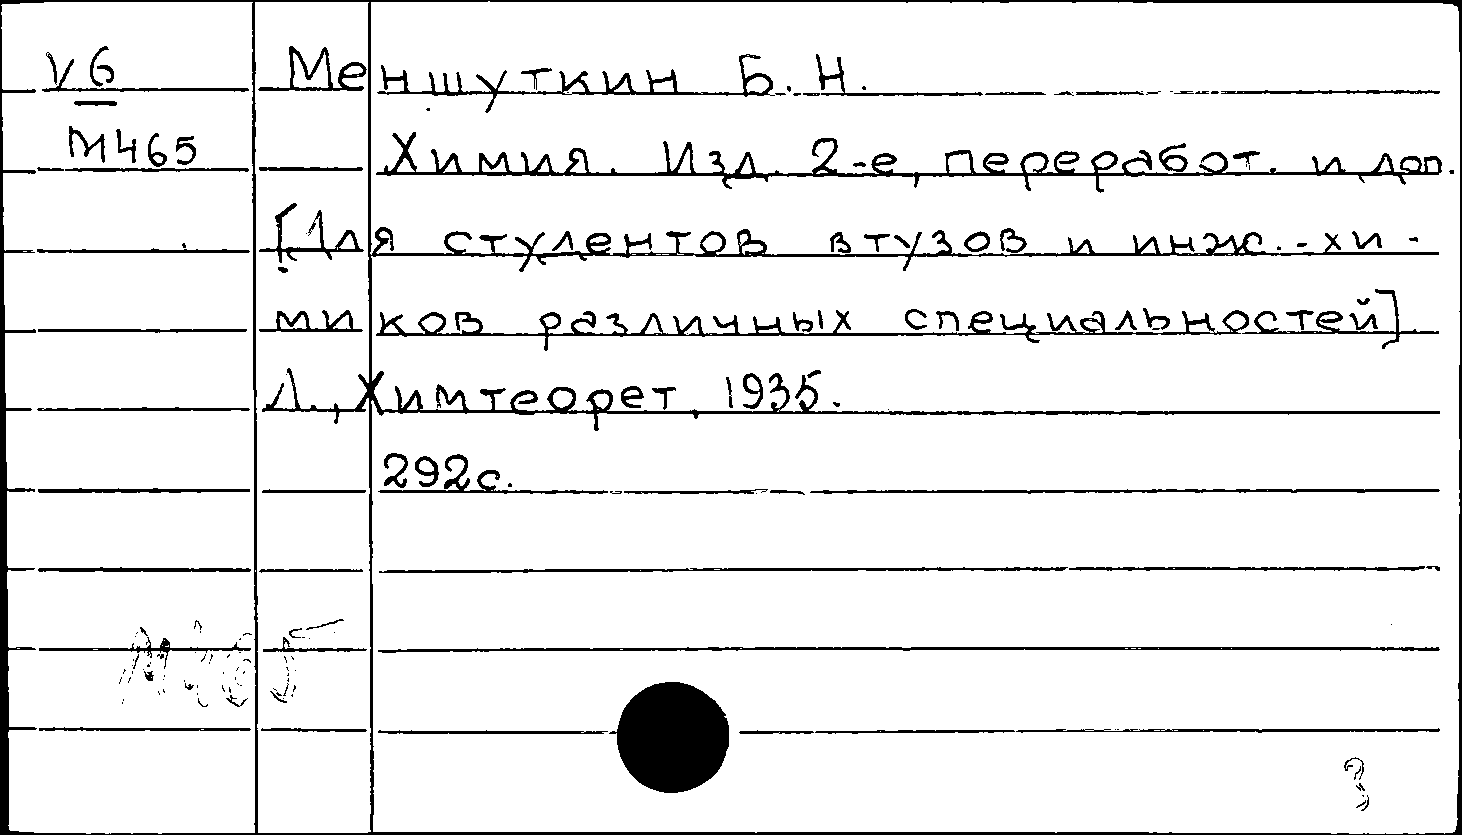 V6 Меншуткин Б. Н.
М465 Химия. Изд. 2-е, переработ. и доп.
[Для студентов втузов и инж.-хи-
миков различных специальностей]
Л., Химтеорет, 1935.
292с.
М465
3